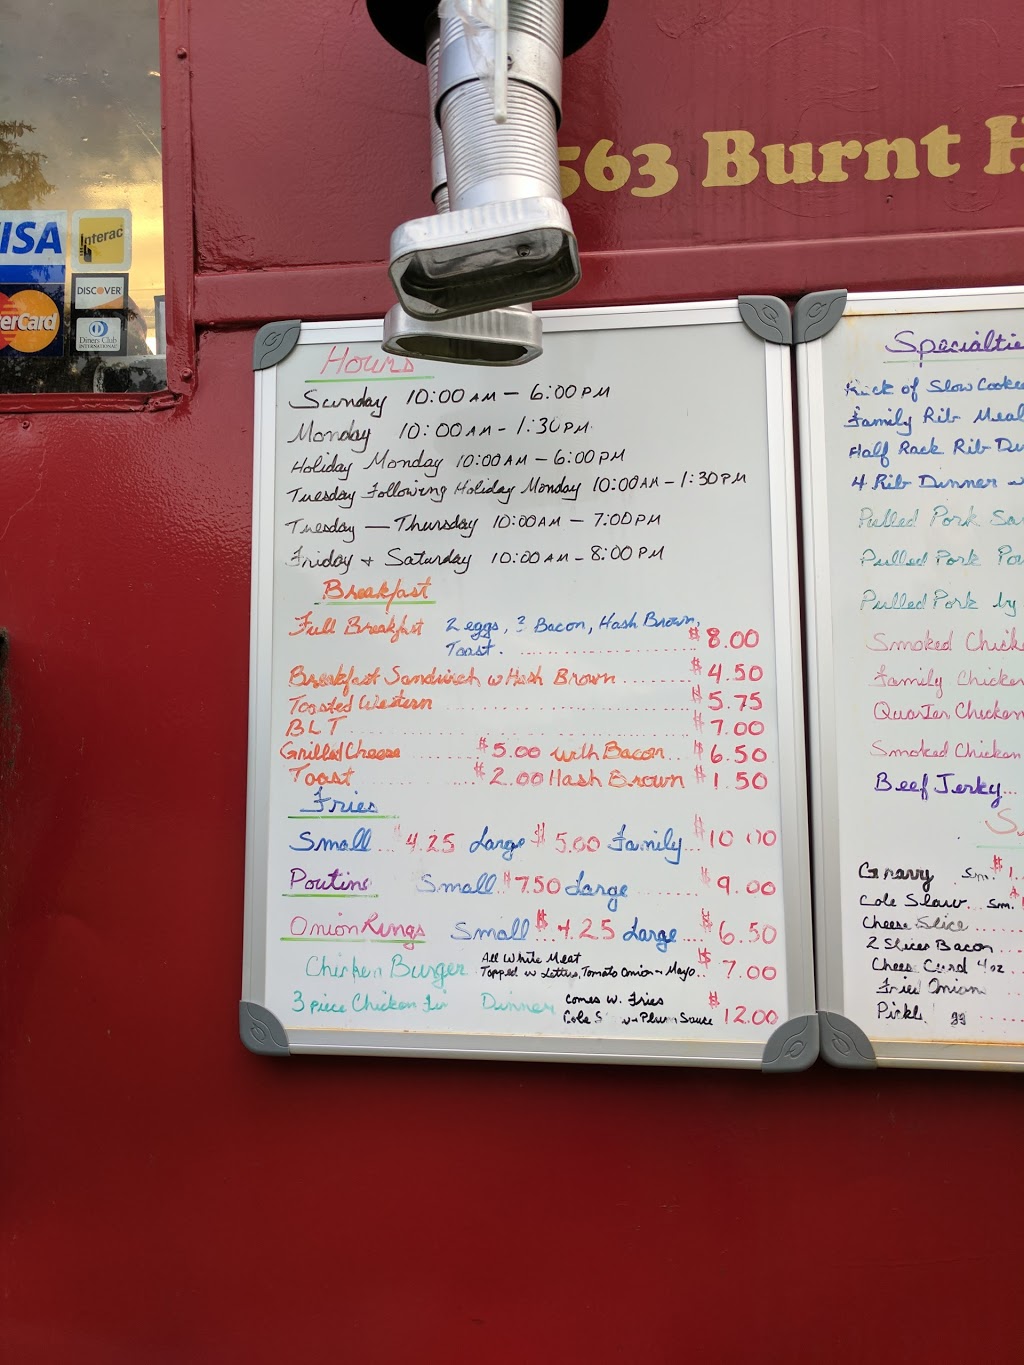 563 Burnt
VISA
Interac
MasterCard
DISCOVER
Diners Club
INTERNATIONAL
Hours
Sunday 10:00 AM - 6:00 PM
Monday 10:00 AM - 1:30 PM
Holiday Monday 10:00 AM - 6:00 PM
Tuesday Following Holiday Monday 10:00 AM - 1:30 PM
Tuesday - Thursday 10:00 AM - 7:00 PM
Friday + Saturday 10:00 AM - 8:00 PM
Breakfast
Full Breakfast 2 eggs, Bacon, Hash Brown,
Toast. ........ $8.00
Breakfast Sandwich w Hash Brown ...... $4.50
Toasted Western ........ $5.75
BLT ........ $7.00
Grilled Cheese ...... $5.00 with Bacon... $6.50
Toast ...... $2.00 Hash Brown $1.50
Fries
Small ... $4.25 Large $5.00 Family $10.00
Poutine Small.. $7.50 Large ...... $9.00
Onion Rings Small $4.25 Large .... $6.50
Chicken Burger All White Meat
Topped w Lettus, Tomato Onion + Mayo.. $7.00
3 piece Chicken Dinner Comes w. Fries
Cole Plum Sauce $12.00
Specialtie
of Slow Cooke
Family Rib Meal
Half Rack Rib
4 Rib Dinner
Pulled Pork
Pulled Pork
Pulled Pork by
Smoked Chick
Family Chicken
Quarter Chicken
Smoked Chicken
Beef Jerky....
Gravy Sm. $1.
Cole Slaw.. Sm. $
Cheese Slice
2 Slices Bacon
Chees Curd 4oz
Fried Onion
Pickl